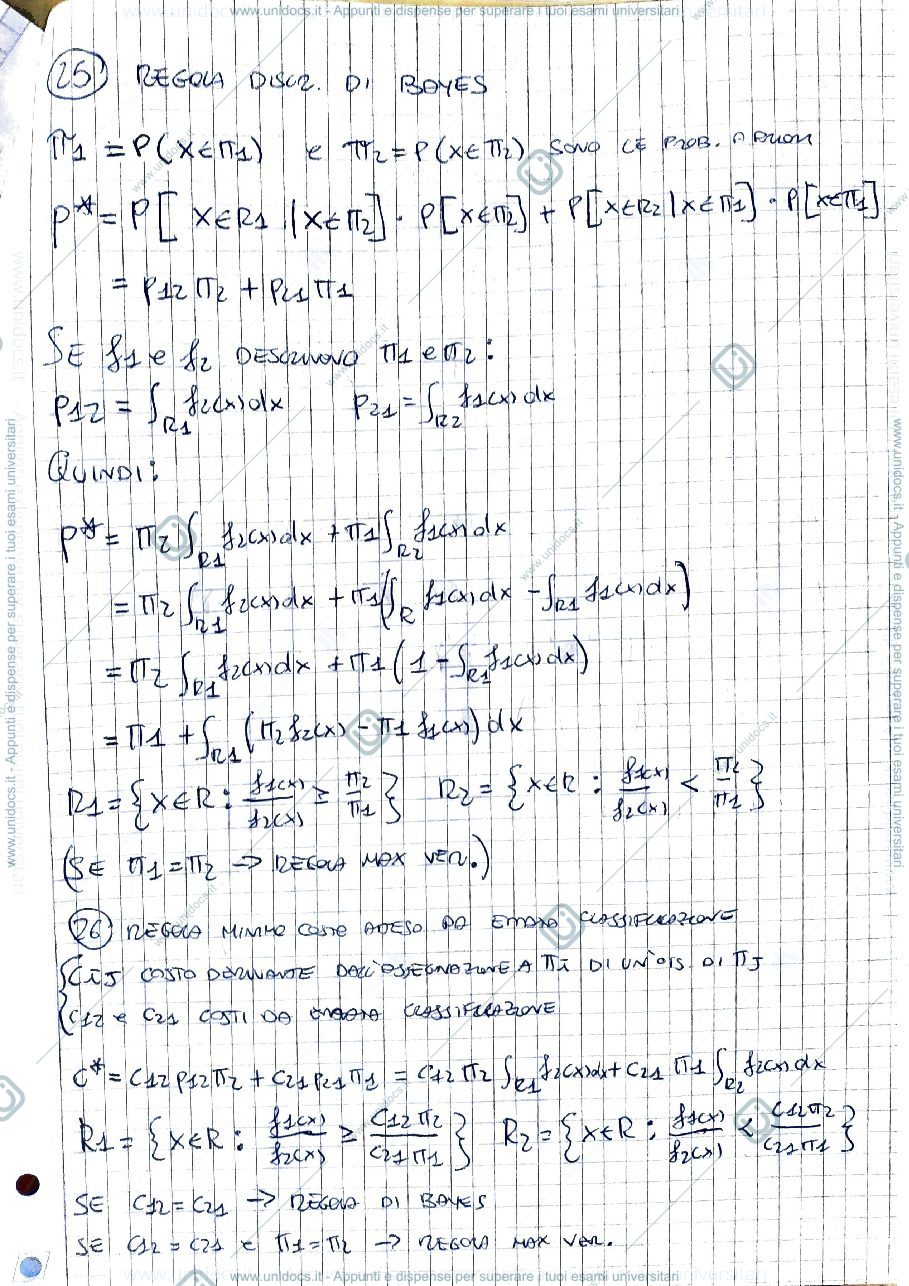 www.unidocs.it - Appunti e dispense per superare i tuoi esami universitari
25) REGOLA DISCR. DI BAYES
π1 = P(X∈π1) e π2 = P(X∈π2) SONO LE PROB. A PRIORI
P* = P[X∈R1 | X∈π2] · P[X∈π2] + P[X∈R2 | X∈π1] · P[X∈π1]
= P12 π2 + P21 π1
SE f1 e f2 DESCRIVONO π1 e π2 :
P12 = ∫R1 f2(x)dx P21 = ∫R2 f1(x)dx
QUINDI:
P* = π2 ∫R1 f2(x)dx + π1 ∫R2 f1(x)dx
= π2 ∫R1 f2(x)dx + π1 (∫R f1(x)dx - ∫R1 f1(x)dx)
= π2 ∫R1 f2(x)dx + π1 (1 - ∫R1 f1(x)dx)
= π1 + ∫R1 (π2 f2(x) - π1 f1(x)) dx
R1 = {X∈R : f1(x)/f2(x) ≥ π2/π1} R2 = {X∈R : f1(x)/f2(x) < π2/π1}
(SE π1 = π2 -> REGOLA MAX VER.)
26) REGOLA MINIMO COSTO ATTESO DA ERRATA CLASSIFICAZIONE
{Cij COSTO DERIVANTE DALL'ASSEGNAZIONE A πi DI UN'OSS. DI πj
C12 e C21 COSTI DA ERRATA CLASSIFICAZIONE
C* = C12 P12 π2 + C21 P21 π1 = C12 π2 ∫R1 f2(x)dx + C21 π1 ∫R2 f2(x)dx
R1 = {X∈R : f1(x)/f2(x) ≥ C12π2/C21π1} R2 = {X∈R : f1(x)/f2(x) < C12π2/C21π1}
SE C12 = C21 -> REGOLA DI BAYES
SE C12 = C21 e π1 = π2 -> REGOLA MAX VER.
www.unidocs.it - Appunti e dispense per superare i tuoi esami universitari
www.unidocs.it - Appunti e dispense per superare i tuoi esami universitari
www.unidocs.it - Appunti e dispense per superare i tuoi esami universitari